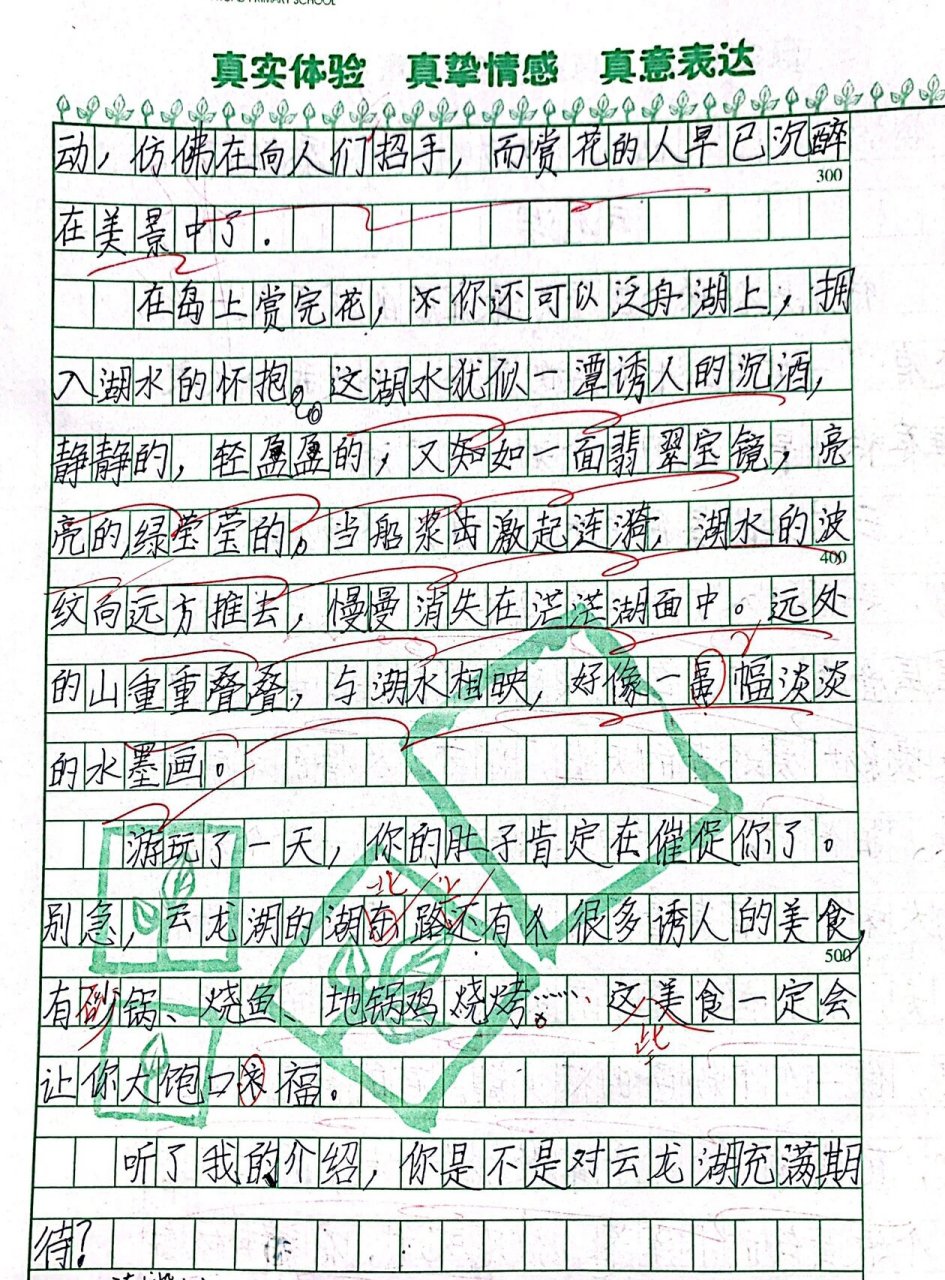 PRIMARY SCHOOL
真实体验 真挚情感 真意表达
动，仿佛在向人们招手，而赏花的人早已沉醉
300
在美景中了．
在岛上赏完花，你还可以泛舟湖上，拥
入湖水的怀抱。这湖水犹似一潭诱人的沉酒，
静静的，轻盈盈的，又如一面翡翠宝镜，亮
亮的，绿莹莹的。当船桨击激起连漪，湖水的波
400
纹向远方推去，慢慢消失在茫茫湖面中。远处
的山重重叠叠，与湖水相映，好像一幅淡淡
的水墨画。
游玩了一天，你的肚子肯定在催促你了。
别急，云龙湖的湖北路还有很多诱人的美食，
500
有砂锅、烧鱼、地锅鸡烧烤……这些美食一定会
让你大饱口福．
听了我的介绍，你是不是对云龙湖充满期
待？